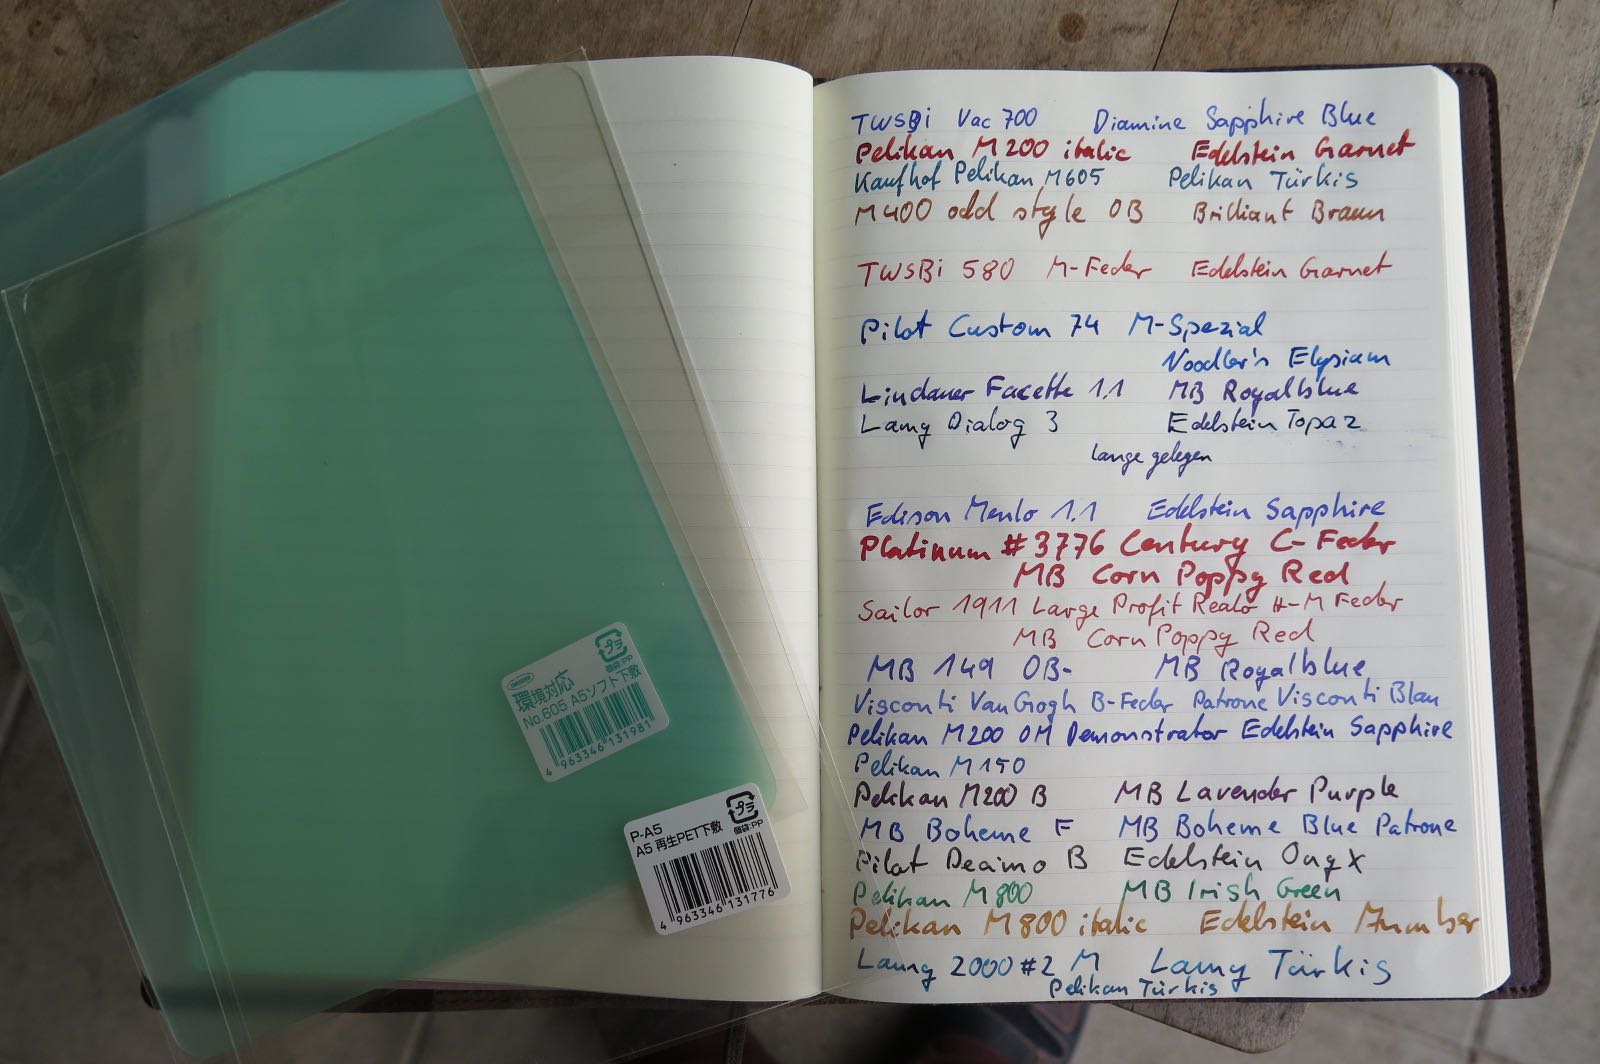 環境対応
No.605 A5ソフト下敷
プラ
個袋:PP
4 963346 131981
P-A5
A5 再生PET下敷
プラ
個袋:PP
4 963346 131776
TWSBi Vac 700 Diamine Sapphire Blue
Pelikan M200 italic Edelstein Garnet
Kaufhof Pelikan M605 Pelikan Türkis
M400 odd style OB Brilliant Braun
TWSBi 580 M-Feder Edelstein Garnet
Pilot Custom 74 M-Spezial
Noodler's Elysium
Lindauer Facette 1.1 MB Royalblue
Lamy Dialog 3 Edelstein Topaz
lange gelegen
Edison Menlo 1.1 Edelstein Sapphire
Platinum #3776 Century C-Feder
MB Corn Poppy Red
Sailor 1911 Large Profit Realo H-M Feder
MB Corn Poppy Red
MB 149 OB- MB Royalblue
Visconti Van Gogh B-Feder Patrone Visconti Blau
Pelikan M200 OM Demonstrator Edelstein Sapphire
Pelikan M150
Pelikan M200 B MB Lavender Purple
MB Boheme F MB Boheme Blue Patrone
Pilot Deaimo B Edelstein Onyx
Pelikan M800 MB Irish Green
Pelikan M800 italic Edelstein Amber
Lamy 2000 #2 M Lamy Türkis
Pelikan Türkis